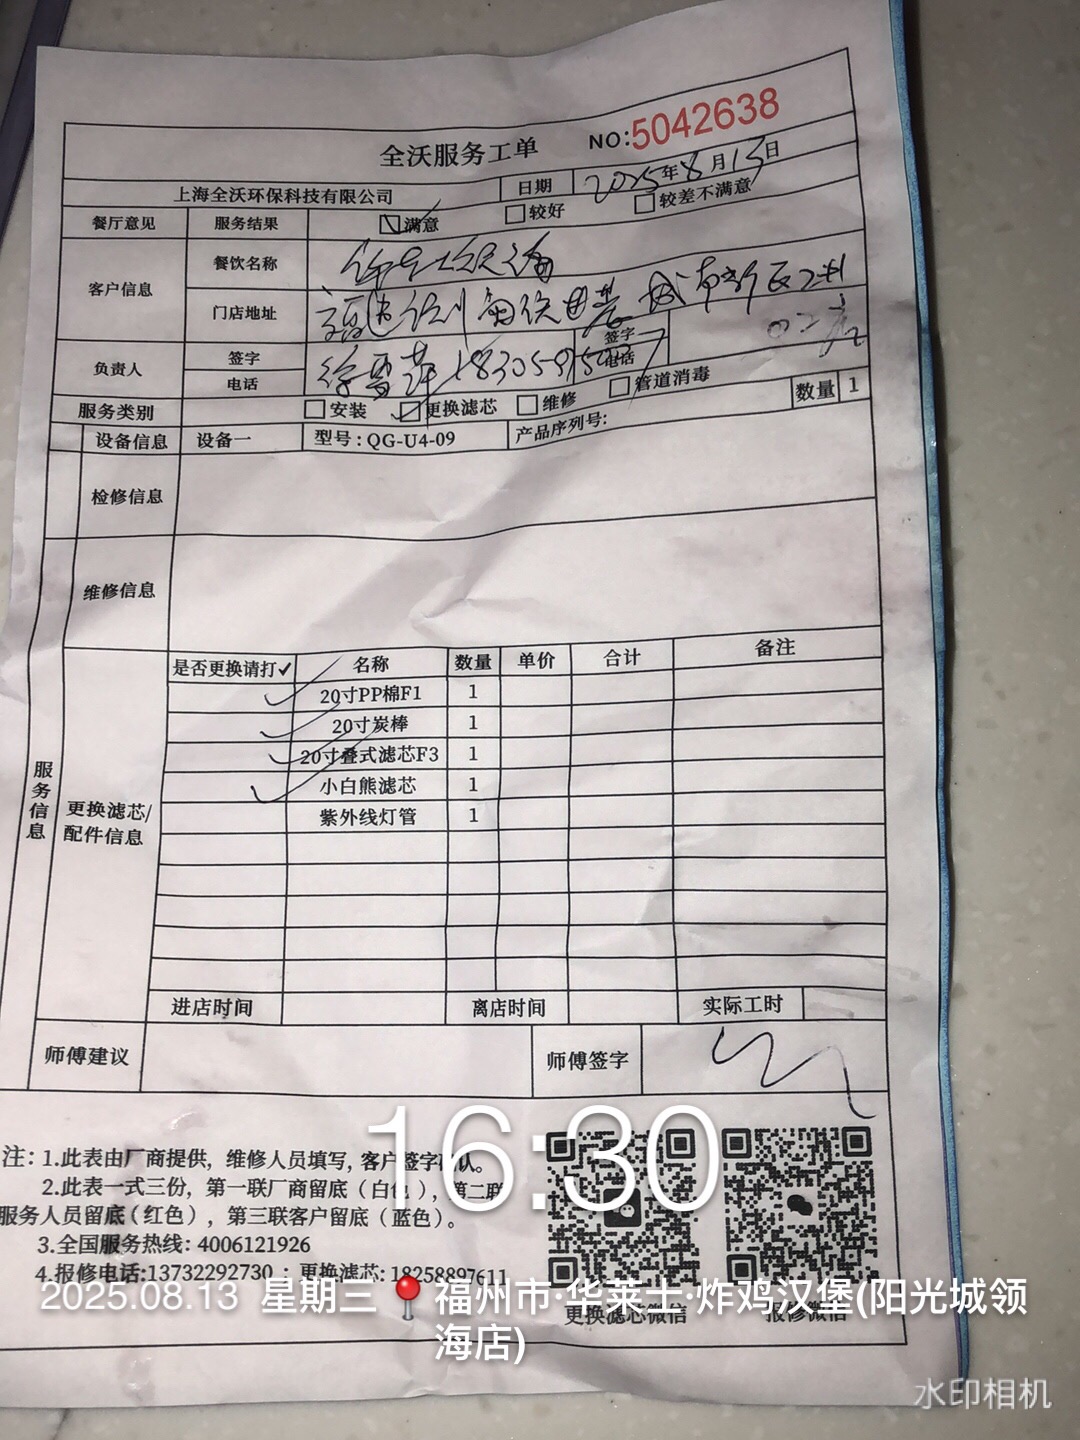 全沃服务工单 NO:5042638
上海全沃环保科技有限公司 日期 2025年8月13日
餐厅意见 服务结果 满意 较好 较差不满意
客户信息 餐饮名称
门店地址 福建
负责人 签字 签字
电话 电话
服务类别 安装 更换滤芯 维修 管道消毒 数量 1
设备信息 设备一 型号:QG-U4-09 产品序列号:
检修信息
维修信息
服务信息
更换滤芯/
配件信息
是否更换请打✓ 名称 数量 单价 合计 备注
✓ 20寸PP棉F1 1
✓ 20寸炭棒 1
✓ 20寸叠式滤芯F3 1
✓ 小白熊滤芯 1
紫外线灯管 1
进店时间 离店时间 实际工时
师傅建议 师傅签字
16:30
注: 1.此表由厂商提供, 维修人员填写, 客户签字确认。
2.此表一式三份, 第一联厂商留底(白色), 第二联
服务人员留底(红色), 第三联客户留底(蓝色)。
3.全国服务热线: 4006121926
4.报修电话:13732292730 ; 更换滤芯: 18258897611
更换滤芯微信 报修微信
2025.08.13 星期三 福州市·华莱士·炸鸡汉堡(阳光城领
海店)
水印相机